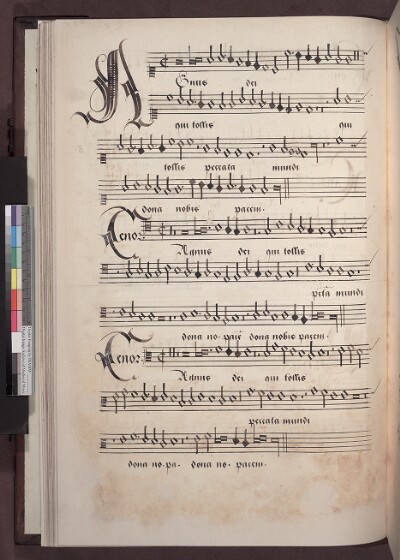 Agnus dei
qui tollis qui
tollis peccata mundi
dona nobis pacem.
Tenor
Agnus dei qui tollis
pctā mundi
dona no- pacē dona nobis pacem.
Tenor
Agnus dei qui tollis
peccata mundi
dona no-pa- dona no- pacem.